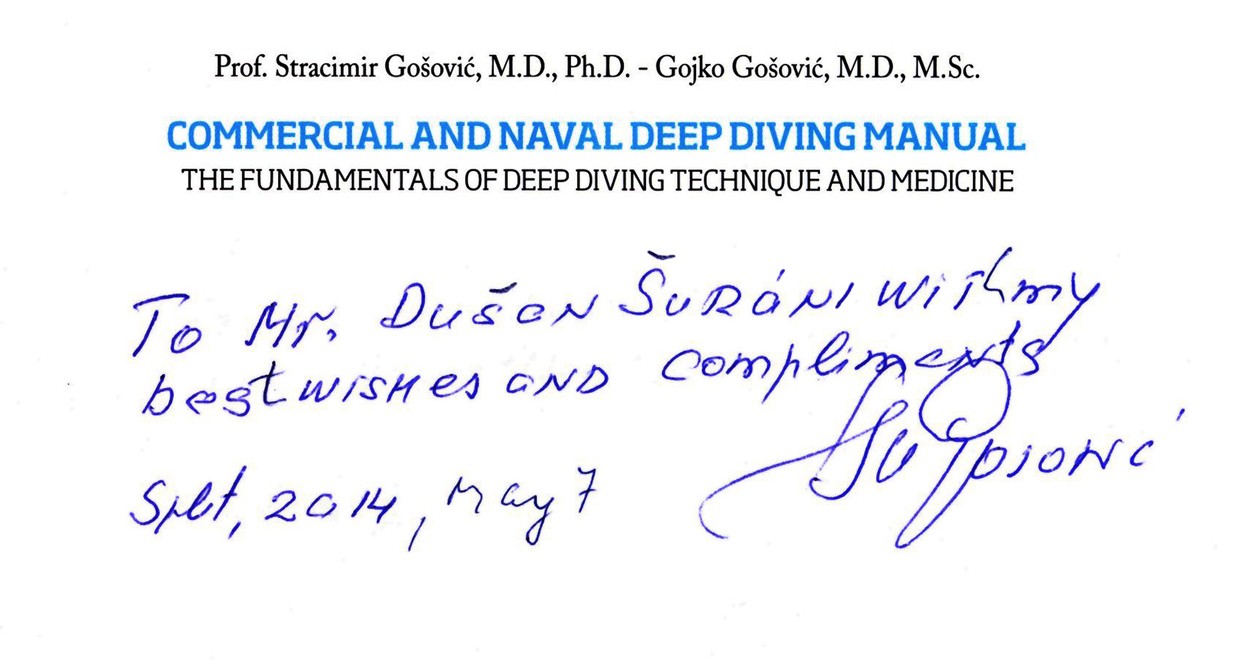 Prof. Stracimir Gošović, M.D., Ph.D. - Gojko Gošović, M.D., M.Sc.
COMMERCIAL AND NAVAL DEEP DIVING MANUAL
THE FUNDAMENTALS OF DEEP DIVING TECHNIQUE AND MEDICINE
To Mr. Dušan Šuráni with my
best wishes and compliments
Split, 2014, May 7